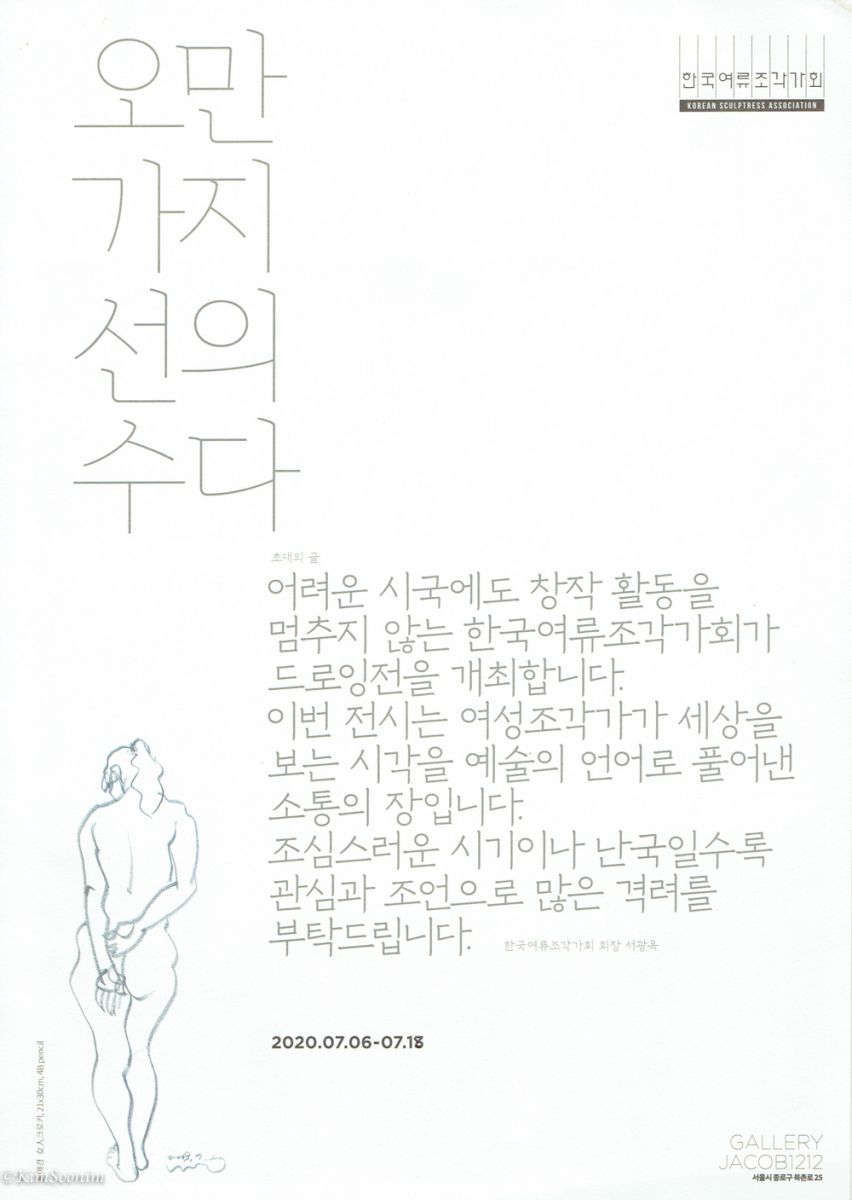 오만
가지
선의
수다
한국여류조각가회
KOREAN SCULPTRESS ASSOCIATION
초대의 글
어려운 시국에도 창작 활동을
멈추지 않는 한국여류조각가회가
드로잉전을 개최합니다.
이번 전시는 여성조각가가 세상을
보는 시각을 예술의 언어로 풀어낸
소통의 장입니다.
조심스러운 시기이나 난국일수록
관심과 조언으로 많은 격려를
부탁드립니다.
한국여류조각가회 회장 서광옥
2020.07.06-07.18
女人크로키, 21x30cm, 4B pencil
©KimSoonim
GALLERY
JACOB1212
서울시 종로구 북촌로 25